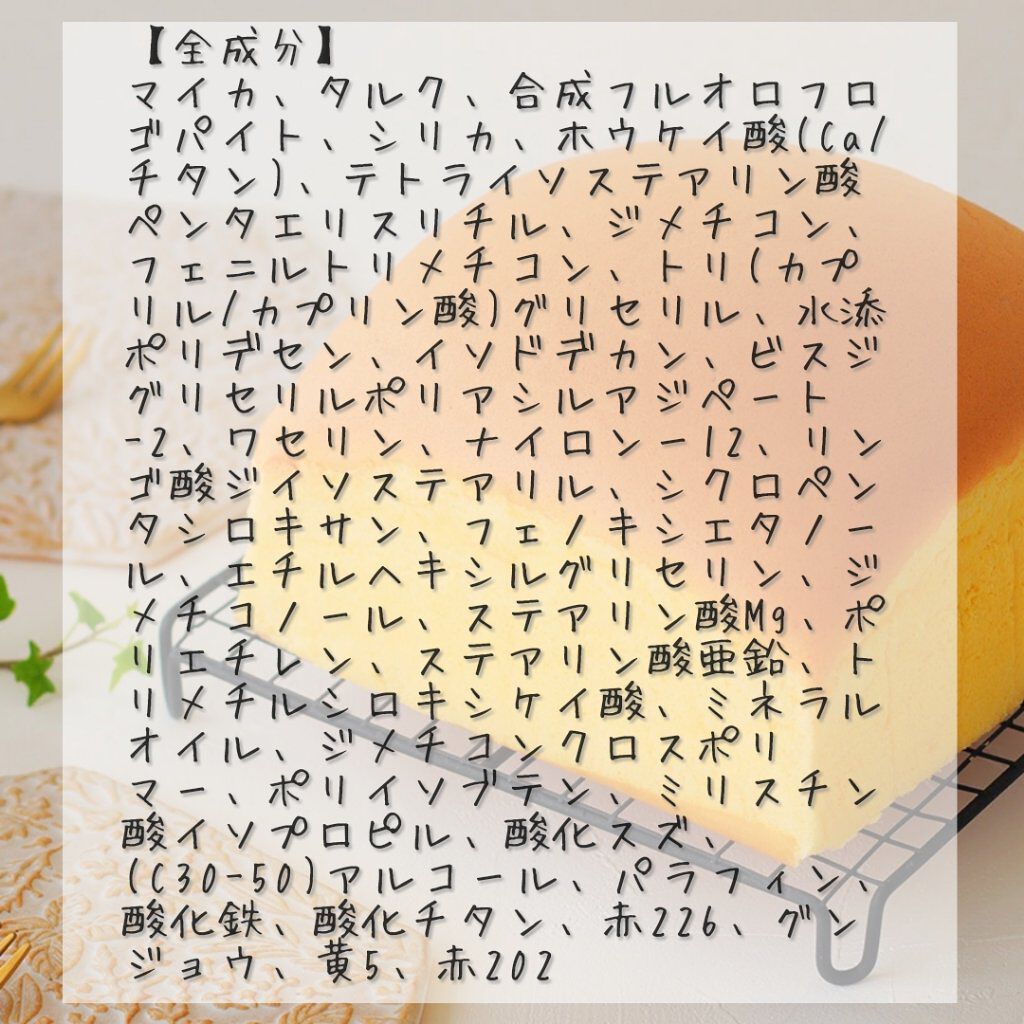 【全成分】
マイカ、タルク、合成フルオロフロ
ゴパイト、シリカ、ホウケイ酸(Ca/
チタン)、テトライソステアリン酸
ペンタエリスリチル、ジメチコン、
フェニルトリメチコン、トリ(カプ
リル/カプリン酸)グリセリル、水添
ポリデセン、イソドデカン、ビスジ
グリセリルポリアシルアジペート
-2、ワセリン、ナイロン－12、リン
ゴ酸ジイソステアリル、シクロペン
タシロキサン、フェノキシエタノー
ル、エチルヘキシルグリセリン、ジ
メチコノール、ステアリン酸Mg、ポ
リエチレン、ステアリン酸亜鉛、ト
リメチルシロキシケイ酸、ミネラル
オイル、ジメチコンクロスポリ
マー、ポリイソブテン、ミリスチン
酸イソプロピル、酸化スズ、
(C30-50)アルコール、パラフィン、
酸化鉄、酸化チタン、赤226、グン
ジョウ、黄5、赤202